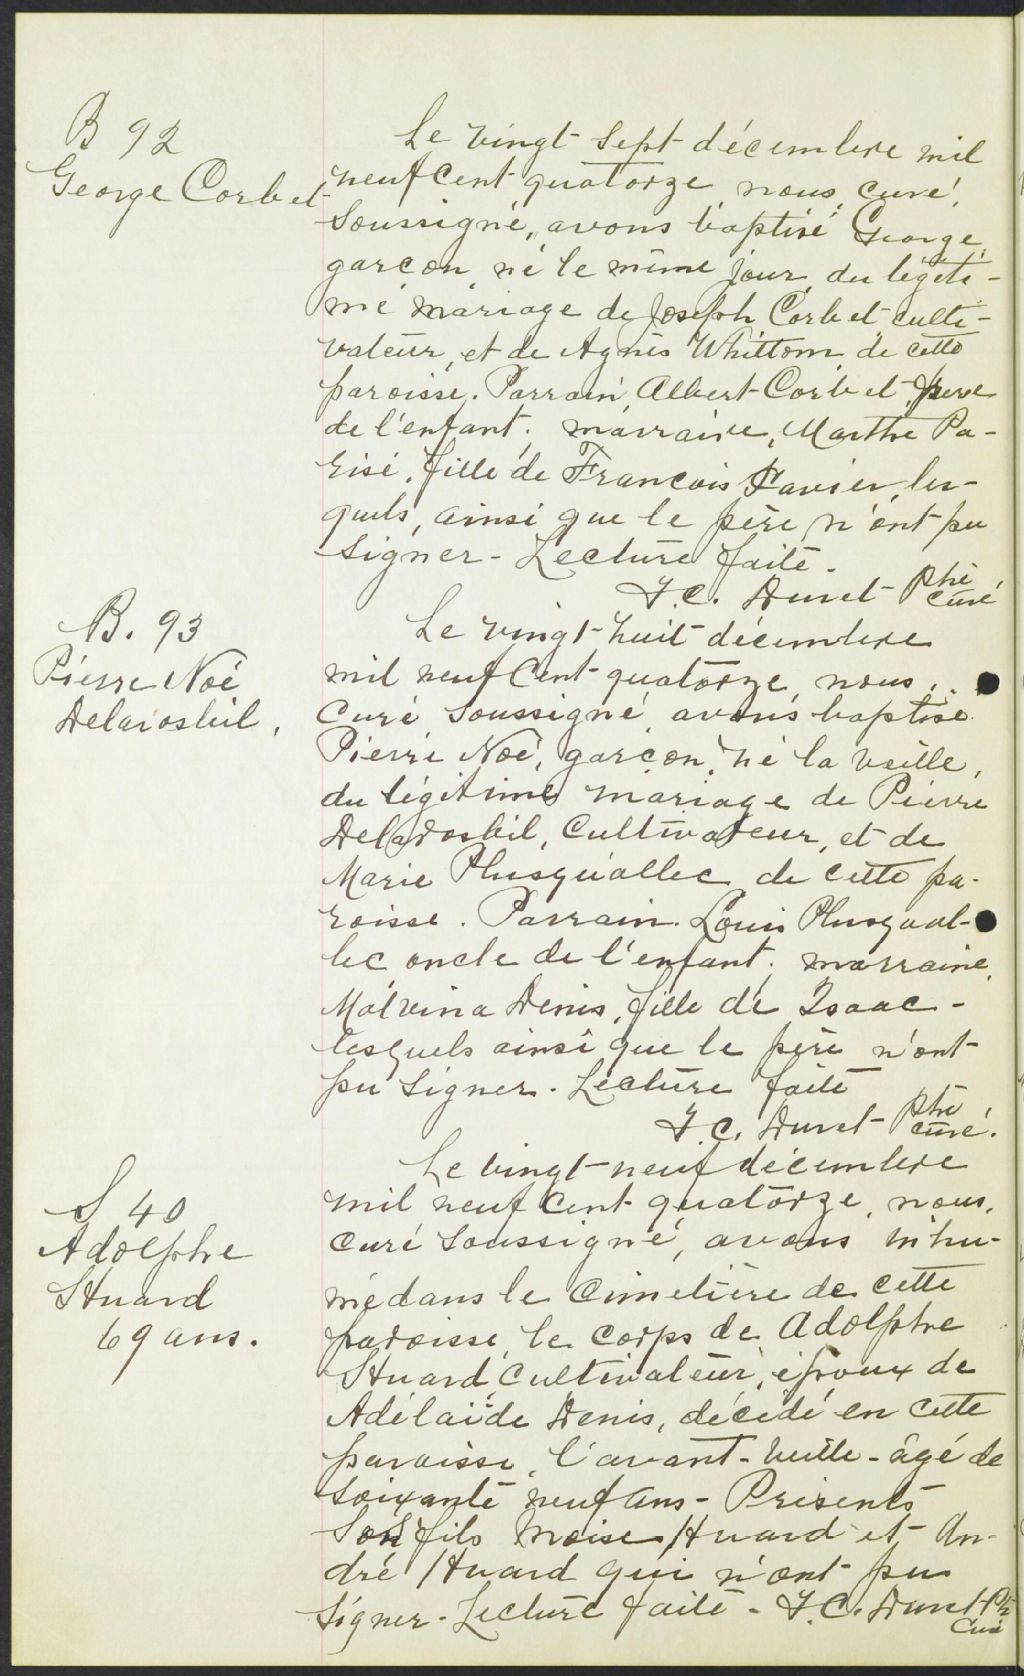 B 92
George Corbet
Le vingt sept décembre mil
neuf cent quatorze, nous, curé
soussigné, avons baptisé George
garçon né le même jour, du légiti-
me mariage de Joseph Corbet culti-
vateur, et de Agnès Whittom de cette
paroisse. Parrain, Albert Corbet, frère
de l'enfant; marraine, Marthe Pa-
risé, fille de François Xavier, les-
quels, ainsi que le père n'ont pu
signer - Lecture faite.
J.C. Duret Ptre
curé
B. 93
Pierre Noé
Delarosbil,
Le vingt-huit décembre
mil neuf cent quatorze, nous,
curé soussigné, avons baptisé
Pierre Noé, garçon, né la veille,
du légitime mariage de Pierre
Delarosbil, cultivateur, et de
Marie Plusquallec de cette pa-
roisse. Parrain. Louis Plusqual-
lec oncle de l'enfant; marraine,
Malvina Denis, fille de Isaac -
lesquels ainsi que le père n'ont
pu signer. Lecture faite
J.C. Duret Ptre
curé.
S 40
Adolphe
Huard
69 ans.
Le vingt-neuf décembre
mil neuf cent quatorze, nous,
curé soussigné, avons inhu-
mé dans le cimetière de cette
paroisse, le corps de Adolphe
Huard, cultivateur, époux de
Adélaïde Denis, décédé en cette
paroisse, l'avant-veille - âgé de
soixante neuf ans - Présents
Son fils Moise Huard et An-
dré Huard qui n'ont pu
signer - Lecture faite - J.C. Duret Ptr
Curé